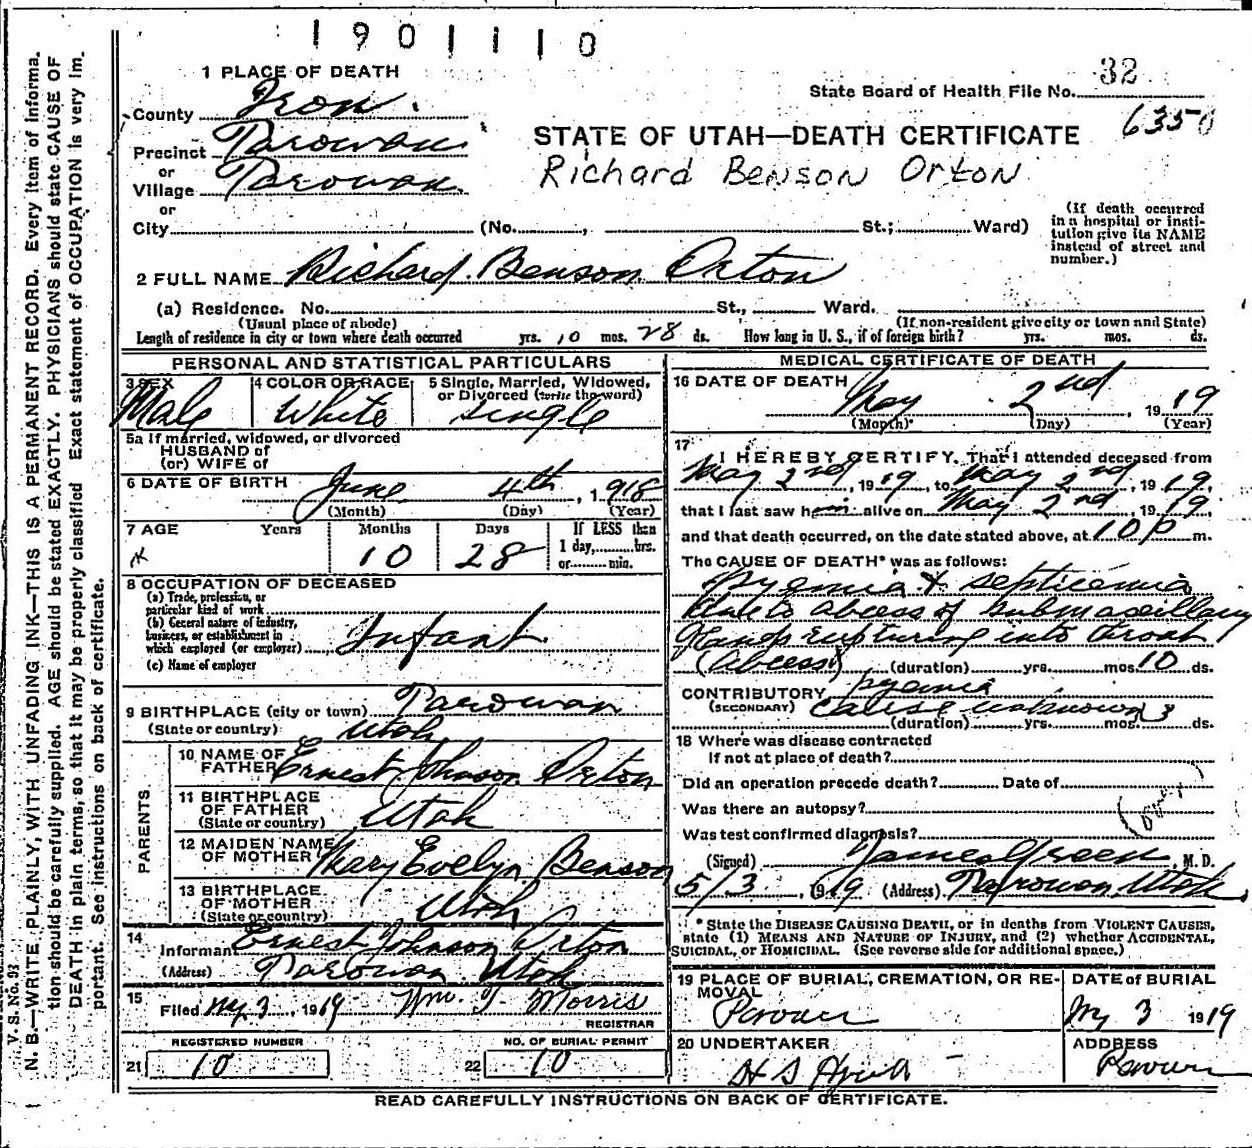 1901110
1 PLACE OF DEATH
32
State Board of Health File No.
County Iron.
6350
Precinct Parowan
STATE OF UTAH—DEATH CERTIFICATE
or
Village Parowan
Richard Benson Orton
or
City (No. , St.; Ward)
(If death occurred in a hospital or insti-
tution give its NAME instead of street and number.)
2 FULL NAME Richard Benson Orton
(a) Residence. No. St., Ward.
(Usual place of abode) (If non-resident give city or town and State)
Length of residence in city or town where death occurred yrs. 10 mos. 28 ds. How long in U. S., if of foreign birth? yrs. mos. ds.
PERSONAL AND STATISTICAL PARTICULARS
3 SEX Male
4 COLOR OR RACE White
5 Single, Married, Widowed,
or Divorced (write the word)
Single
5a If married, widowed, or divorced
HUSBAND of
(or) WIFE of
6 DATE OF BIRTH June 4th, 1918
(Month) (Day) (Year)
7 AGE Years Months Days If LESS than
10 28 1 day, hrs.
or min.
8 OCCUPATION OF DECEASED
(a) Trade, profession, or
particular kind of work
(b) General nature of industry,
business, or establishment in
which employed (or employer) Infant
(c) Name of employer
9 BIRTHPLACE (city or town) Parowan
(State or country) Utah
PARENTS
10 NAME OF
FATHER Ernest Johnson Orton
11 BIRTHPLACE
OF FATHER
(State or country) Utah
12 MAIDEN NAME
OF MOTHER Mary Evelyn Benson
13 BIRTHPLACE
OF MOTHER
(State or country) Utah
14
Informant Ernest Johnson Orton
(Address) Parowan Utah
15 Filed My 3, 1919 Wm. T Morris
REGISTRAR
REGISTERED NUMBER NO. OF BURIAL PERMIT
21 10 22 10
MEDICAL CERTIFICATE OF DEATH
16 DATE OF DEATH
May 2nd, 1919
(Month) (Day) (Year)
17
I HEREBY CERTIFY, That I attended deceased from
May 2nd, 1919, to May 2nd, 1919,
that I last saw him alive on May 2nd, 1919,
and that death occurred, on the date stated above, at 10 P m.
The CAUSE OF DEATH* was as follows:
Pyemia & septicemia
due to abcess of submaxillary
glands rupturing into throat
(Abcess) (duration) yrs. mos 10 ds.
CONTRIBUTORY pyemia
(SECONDARY) cause unknown 3
(duration) yrs. mos. ds.
18 Where was disease contracted
if not at place of death?
Did an operation precede death? Date of
Was there an autopsy?
Was test confirmed diagnosis?
(Signed) James Green, M. D.
5/3, 1919 (Address) Parowan Utah.
* State the DISEASE CAUSING DEATH, or in deaths from VIOLENT CAUSES,
state (1) MEANS AND NATURE OF INJURY, and (2) whether ACCIDENTAL,
SUICIDAL, or HOMICIDAL. (See reverse side for additional space.)
19 PLACE OF BURIAL, CREMATION, OR RE-
MOVAL
Parowan
DATE of BURIAL
My 3 1919
20 UNDERTAKER
H S
ADDRESS
Parowan
READ CAREFULLY INSTRUCTIONS ON BACK OF CERTIFICATE.
V. S. No. 93
N. B.—WRITE PLAINLY, WITH UNFADING INK—THIS IS A PERMANENT RECORD. Every item of informa.
tion should be carefully supplied. AGE should be stated EXACTLY. PHYSICIANS should state CAUSE OF
DEATH in plain terms, so that it may be properly classified Exact statement of OCCUPATION is very im.
portant. See instructions on back of certificate.